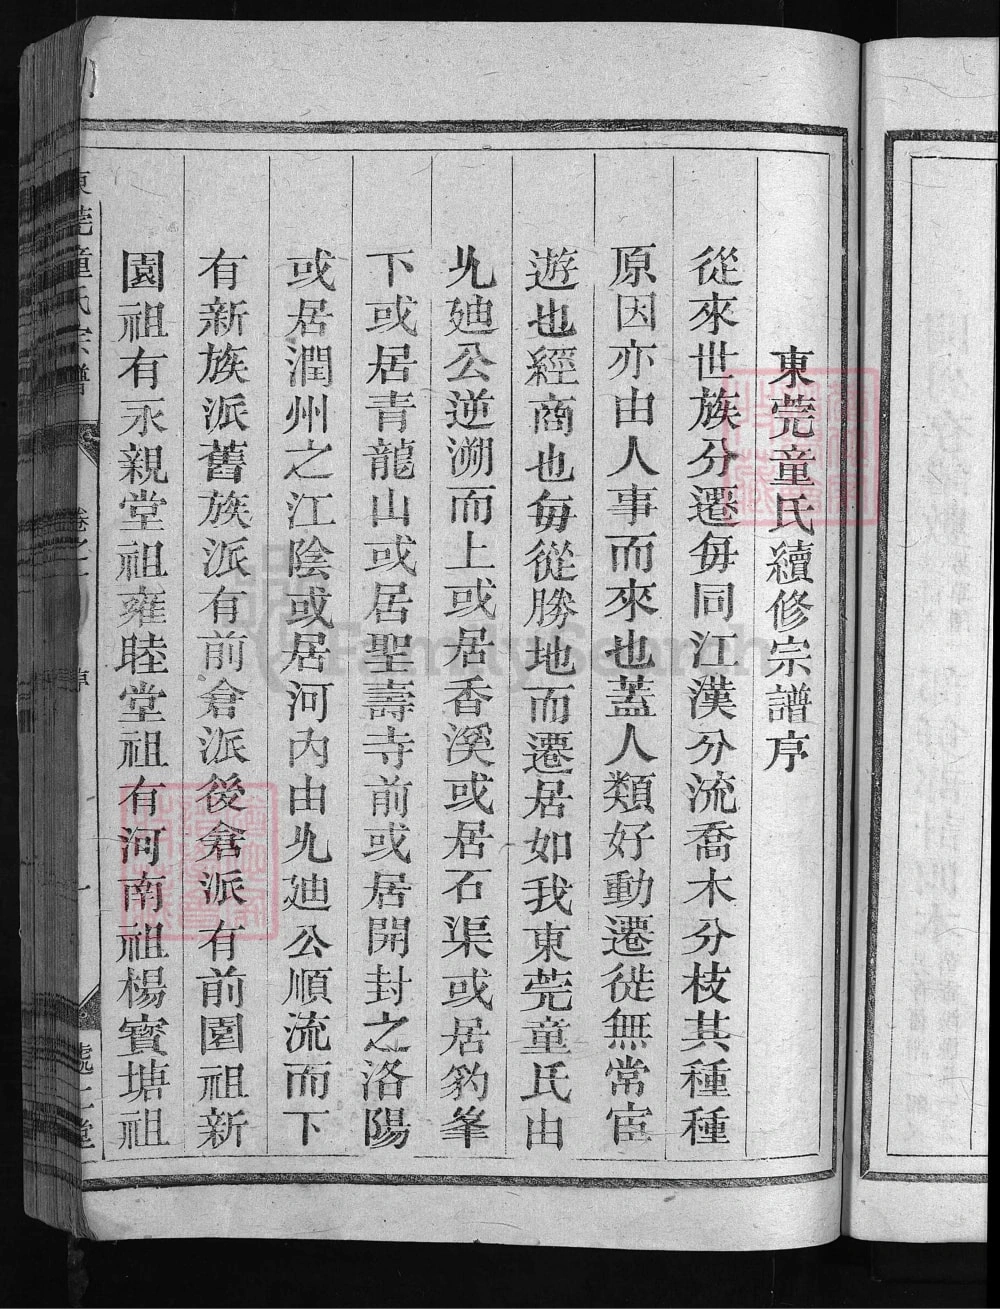 東莞童氏續修宗譜序
從來世族分遷每同江漢分流喬木分枝其種種
原因亦由人事而來也蓋人類好動遷徙無常宦
遊也經商也每從勝地而遷居如我東莞童氏由
九廸公逆溯而上或居香溪或居石渠或居豹峯
下或居青龍山或居聖壽寺前或居開封之洛陽
或居潤州之江陰或居河內由九廸公順流而下
有新族派舊族派有前倉派後倉派有前園祖新
園祖有永親堂祖雍睦堂祖有河南祖楊寳塘祖
東莞童氏宗譜
卷之一
序
一
FamilySearch